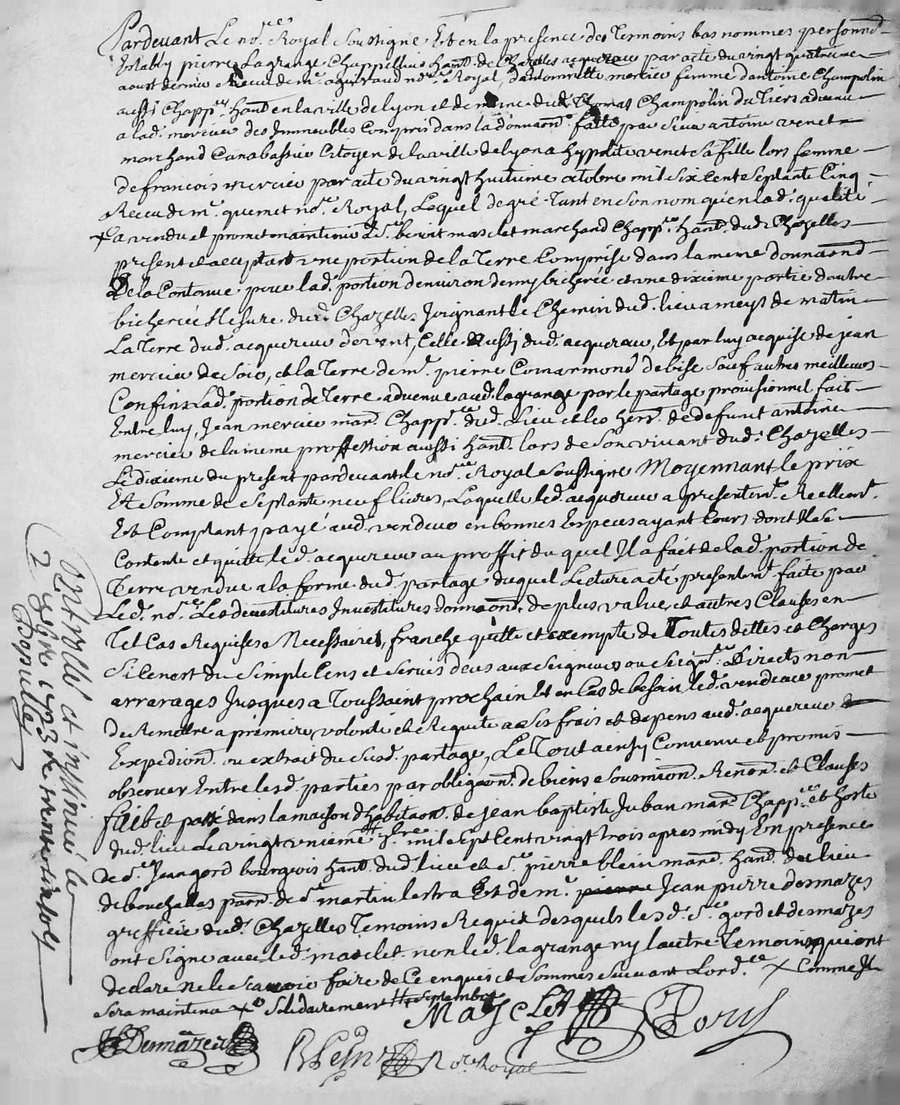 Pardevant Le no.re Royal Soussigne Et en la presence des Temoins bas nommes personnd.
Estably pierre Lagrange Chappellier hand. de Chazelles acquereur par acte du vingt quatrieme
aoust dernier Receu de m.e no.re Royal mercier femme dantoine Champolin
aussi Chapp.er hand. en la ville de lyon et de Thomas Champolin du Tiers advenu
a lad. mercier des Immeubles Compris dans la donnaon. faite par Sieur antoine venet
marchand Canabassier Citoyen de la ville de lyon a hypolite venet Sa fille lors femme
de francois mercier par acte du vingt huitieme octobre mil Six Cent Septante Cinq
Receu de m.e quemet no.re Royal, Lequel de gré Tant en Son nom qu'en lad. qualité
+ a vendu et promet maintenir a S.r benoit masclet marchand Chapp.er hand. dud. Chazelles
present et acceptant une portion de la Terre Comprise dans la meme donnaond.
De la Contenue pour lad. portion denviron demy bicherée et une dixieme partie dautre
bicherée Mesure dud. Chazelles Joignant le Chemin dud. lieu a meys de matin
La Terre dud. acquereur de vent, Celle aussi dud. acquereur, Et par luy acquise de jean
mercier de Soir, et la Terre de m.e pierre Comarmond de bise Sauf autres meilleurs
Confins Lad. portion de Terre advenue aud. lagrange par le partage provisionnel fait
Entre luy, Jean mercier mard. Chapp.er dud. Lieu et les her.s de deffunt antoine
mercier de la meme proffession aussi hand. lors de Son vivant dud. Chazelles
Le dixieme du present pardevant le no.re Royal Soussigne Moyennant le prix
Et Somme de Septante neuf livres, Laquelle led. acquereur a presentem.t Reellem.t
Et Comptant payé aud. vendeur en bonnes Especes ayant Cours dont Il Se
Contente et quitte led. acquereur au proffit du quel Il a fait de lad. portion de
Terre vendue a la forme dud. partage duquel Lecture a eté presentem.t faite par
Led. no.re Les devestitures Investitures donnaon. de plus value, et autres Clauses en
Tel Cas Requises Necessaires, franche quitte et exempte de Toutes dettes et Charges
Si Ce nest du Simple Cens et Servis deus aux Seigneurs ou Seign.r Directs non
arrarages Jusques a Toussaint prochain Et en Cas de besoin led. vendeur promet
de Remettre a premiere volonté et Requite a Ses frais et depens aud. acquereur
Expedion. ou extrait du Susd. partage, Le Tout ainsy Convenu et promis
observer Entre lesd. parties par obligaon. de biens Soumion. Renon. et Clauses
fait et passé dans la maison dhabitaon. de jean baptiste Juban mard. Chapp.er et hoste
dud. lieu Le vingt unieme 7bre mil Sept Cent vingt trois apres midy En presence
de S.r Jean gord bourgeois hand. dud. lieu et S.r pierre blein mard. hand. du lieu
de bouchallas par. de S.t martin lestra Et de m.e pierre Jean pierre desmazes
greffier dud. Chazelles Temoins Requis desquels lesd. S.rs gord et desmazes
ont Signe avec led. masclet non led. lagrange ny lautre Temoins qui ont
declare ne le Scavoir faire de Ce enquis et Sommes Suivant Lord.ce x Comme Il
Sera maintenu x Solidairement Septembre
MasCLet Gord
JP Demazes Blein No.re Royal
Controllé et insinué le
2 8bre 1723
Populle